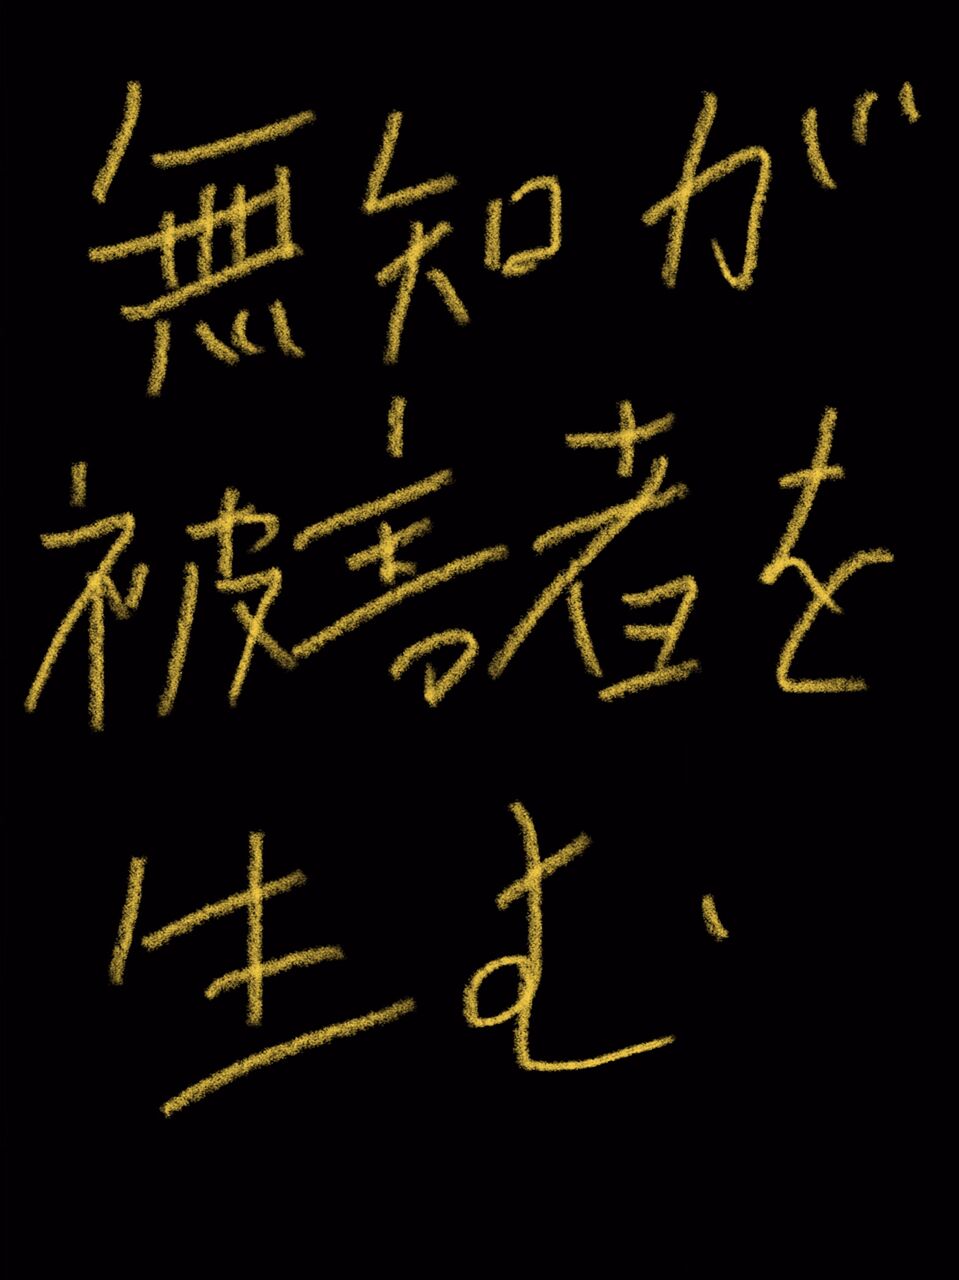 無知が
被害者を
生む